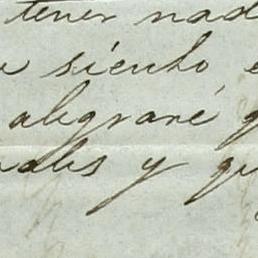 tener nad
siento e
alegraré q
ales y qu